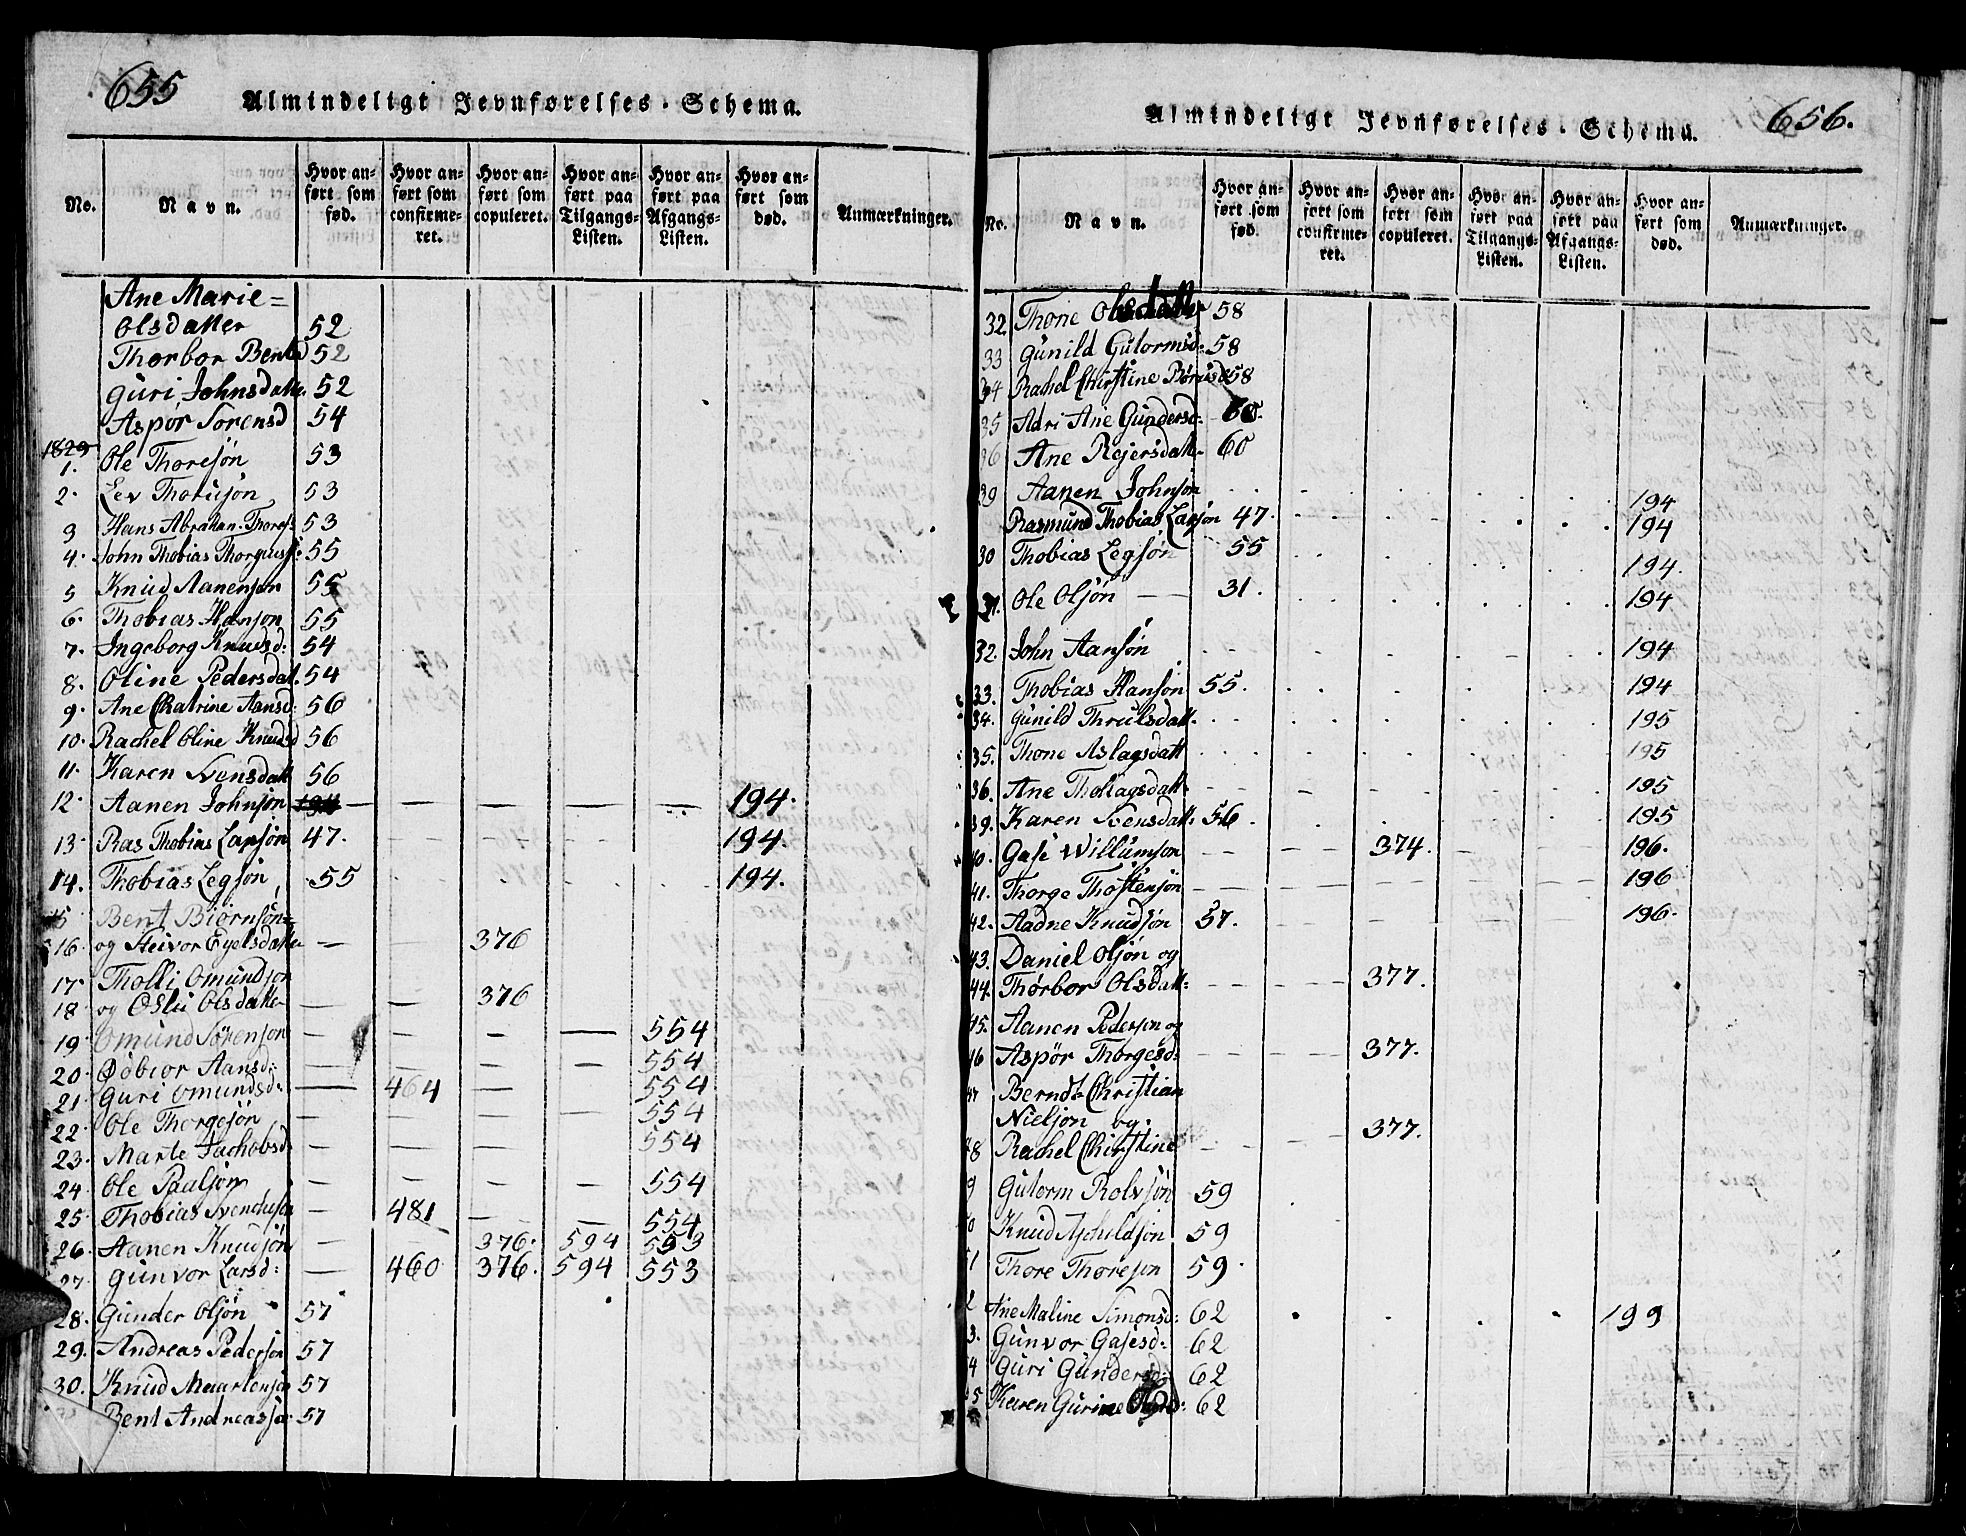 655
Almindeligt Jevnførelses-Schema.
No. | Navn. | Hvor anført som fød. | Hvor anført som confirmeret. | Hvor anført som copuleret. | Hvor anført paa Tilgangs-Listen. | Hvor anført paa Afgangs-Listen. | Hvor anført som død. | Anmærkninger.
Ane Marie=
Olsdatter 52
Thorbor Bentsd 52
Guri Johnsdatter. 52
Aspør Sorensd 54
1829
1. Ole Thoresøn 53
2. Lev 53
3 Hans Abrahan. Thores: 53
4. John Thobias 55
5 Knud Aanenson 55
6. Thobias Hanson 55
7. Ingeborg Knudsd: 54
8. Oline Pedersdat. 54
9. Ane Chatrine Aansd: 56
10. Rachel Oline Knudsd 56
11. Karen Svensdatt 56
12. Aanen Johnson 194 — — — — — 194.
13. Ras Thobias Larsøn 47. — — 194.
14. Thobias Legsøn 55 . . . . 194.
15 Bent Biørnsøn=
16. og Steivor Eyelsdatter — — 376
17. Tholli Omundson
18. og Osli Olsdatter — — 376
19. Omund Sørenson — — — — 554
20. Aansd: — — — — 554
21. Guri Omundsd: — 464 — 554
22. Ole Thorgesøn — — — 554
23. Marte Jachobsd — — — 554
24. Ole Paulson — — — — 554
25. Thobias — 481 — — 554
26. Aanen Knudsøn — 376. 594 553
27. Gunvor Larsd: — 460 376. 594 553
28. Gunder Olsøn 57
29. Andreas Pederson 57
30. Knud 57
Bent 57
Almindeligt Jevnførelses-Schema.
656.
No. | Navn. | Hvor anført som fød. | Hvor anført som confirmeret. | Hvor anført som copuleret. | Hvor anført paa Tilgangs-Listen. | Hvor anført paa Afgangs-Listen. | Hvor anført som død. | Anmærkninger.
32. Thone Olsdatter 58
33 Gunild Gutormsd: 58
34 Rachel Christine 58
35 Adri Ane Gundersd: 60.
36 Ane Rejersdatt. 60
39 Aanen Johnson . . . . . 194
Rasmund Thobias Larson 47. . . . . 194
30 Thobias Legsøn 55 . . . . 194.
31. Ole Olsøn — 31. . . . . . 194
32. John Aansøn . . . . . 194
33. Thobias Hanson 55. . . . . 194
34. Gunild Thrulsdatt. . . . . . 195
35. Thone Aslagsdatt . . . . . 195
36. Ane — — — — . 195
39. Karen Svensdatt. 56. . . . . 195
40. Gase Willumson — — 374. — — 196.
41. Thorge Thostensøn — — — — — 196
42. Aadne Knudsøn 57. — — — — 196.
43. Daniel Olsøn og
44. Thørbor Olsdatt: — — — 377.
45. Aanen Pederson og
46 Aspør Thorgesd: — — — 377.
47 Berndt Christian
Nielson og.
48 Rachel Christine — — — 377.
9 Gutorm Rolvsøn 59
0 Knud 59
1 Thore Thoreson 59.
2 Ane Maline Simonsd: 62 . . . . 199
3. Gunvor Gasesd: 62
4 Guri Gundersd: 62
5 Karen Gurine 62